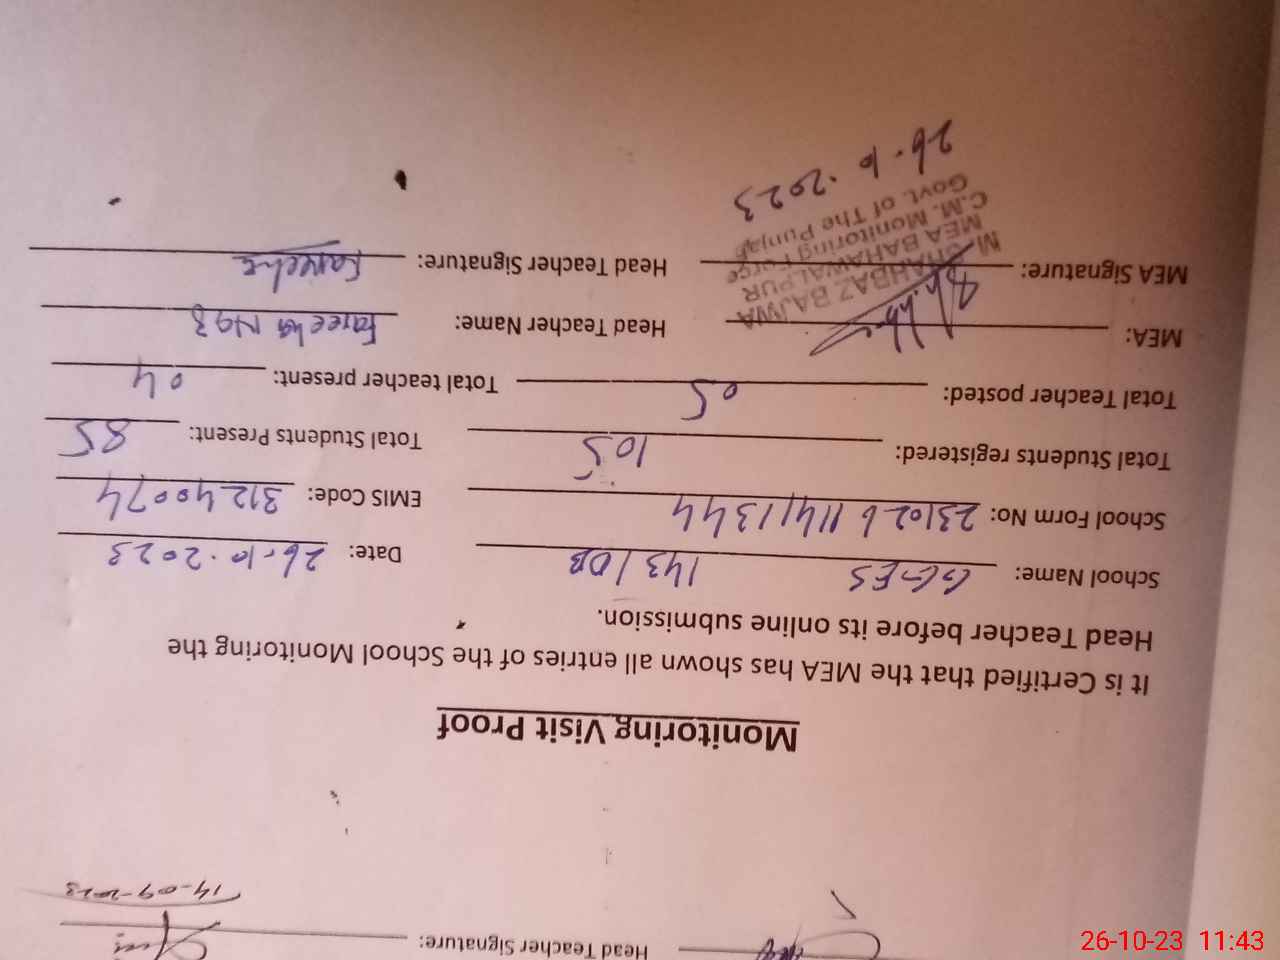 Head Teacher Signature:
14-09-2023
Monitoring Visit Proof
It is Certified that the MEA has shown all entries of the School Monitoring the
Head Teacher before its online submission.
School Name: GGES 143/DB Date: 26.10.2023
School Form No: 23102611411344 EMIS Code: 31240074
Total Students registered: 105 Total Students Present: 85
Total Teacher posted: 05 Total teacher present: 04
MEA: Head Teacher Name: Fareeha Naz
MEA Signature: Head Teacher Signature: Fareeha
SHAHBAZ BAJWA
MEA BAHAWALPUR
C.M. Monitoring Force
Govt. of The Punjab
26.10.2023
26-10-23 11:43